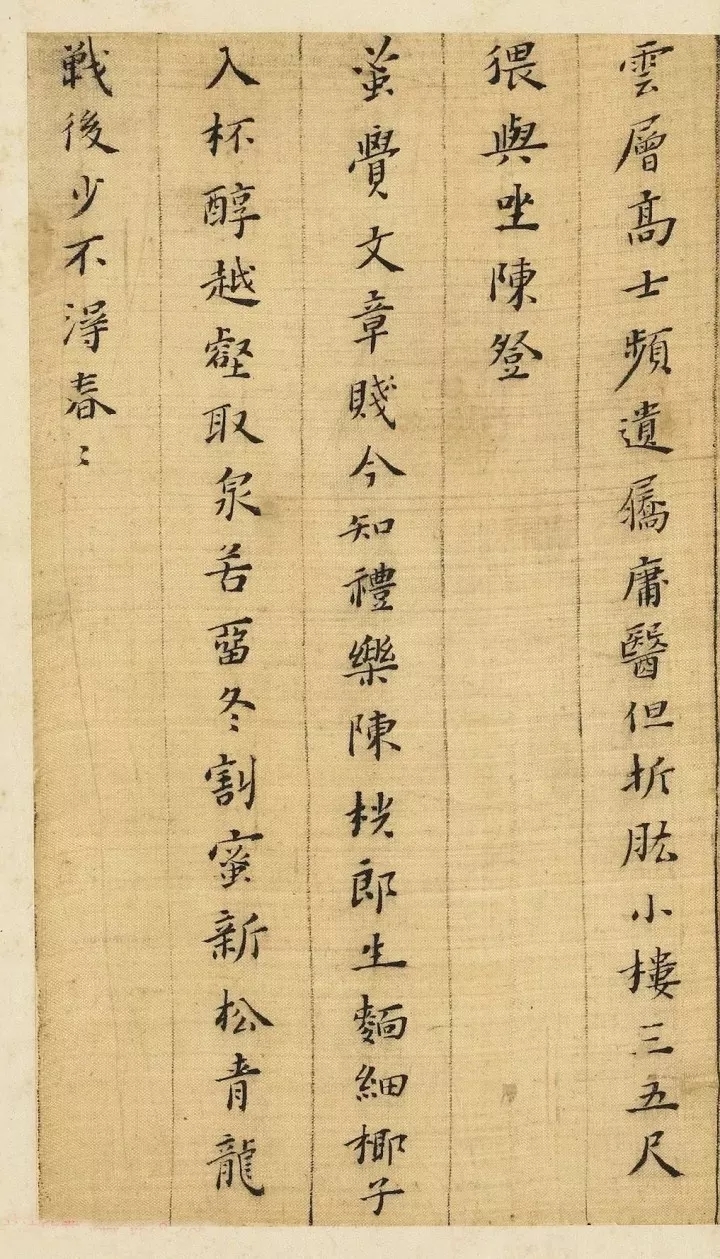 雲層高士頻遺屩庸醫但折肱小樓三五尺
猥與坐陳登
蚤覺文章賤今知禮樂陳桄郎生麵細椰子
入杯醇越壑取泉苦畱冬割蜜新松青龍
戰後少不得春〻